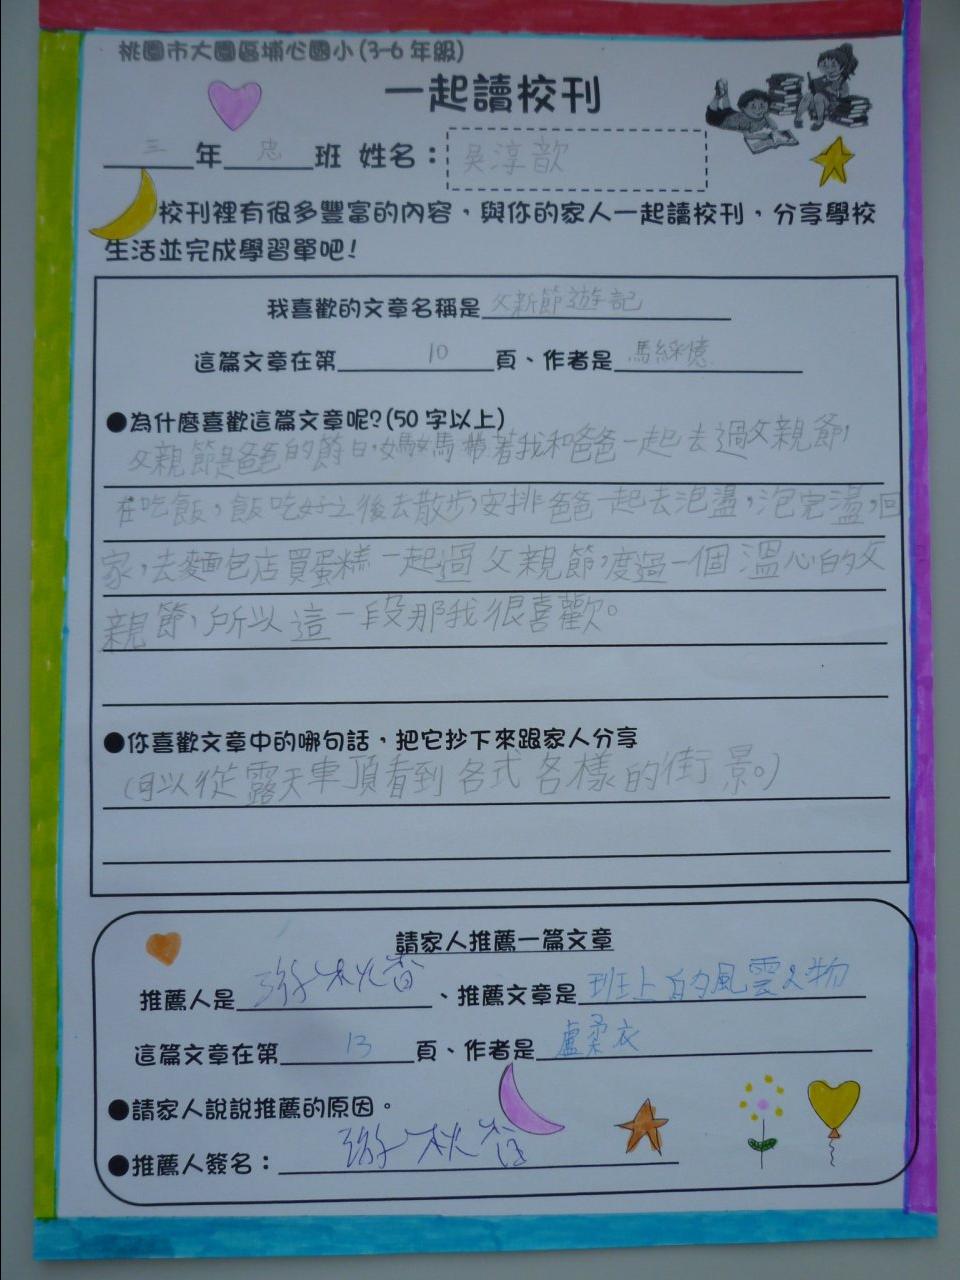 桃園市大園區埔心國小(3-6年級)
一起讀校刊
三年忠班 姓名：吳淳歆
校刊裡有很多豐富的內容，與你的家人一起讀校刊，分享學校
生活並完成學習單吧！
我喜歡的文章名稱是父新節遊記
這篇文章在第10頁、作者是馬綵憶
●為什麼喜歡這篇文章呢?(50字以上)
父親節是爸爸的節日，媽媽帶著我和爸爸一起去過父親節，
在吃飯，飯吃好之後去散步，安排爸爸一起去泡盪，泡完盪，回
家，去麵包店買蛋糕一起過父親節，度過一個溫心的父
親節，所以這一段那我很喜歡。
●你喜歡文章中的哪句話，把它抄下來跟家人分享
(可以從露天車頂看到各式各樣的街景。)
請家人推薦一篇文章
推薦人是游秋香、推薦文章是班上的風雲人物
這篇文章在第13頁、作者是盧柔衣
●請家人說說推薦的原因。
●推薦人簽名：游秋香